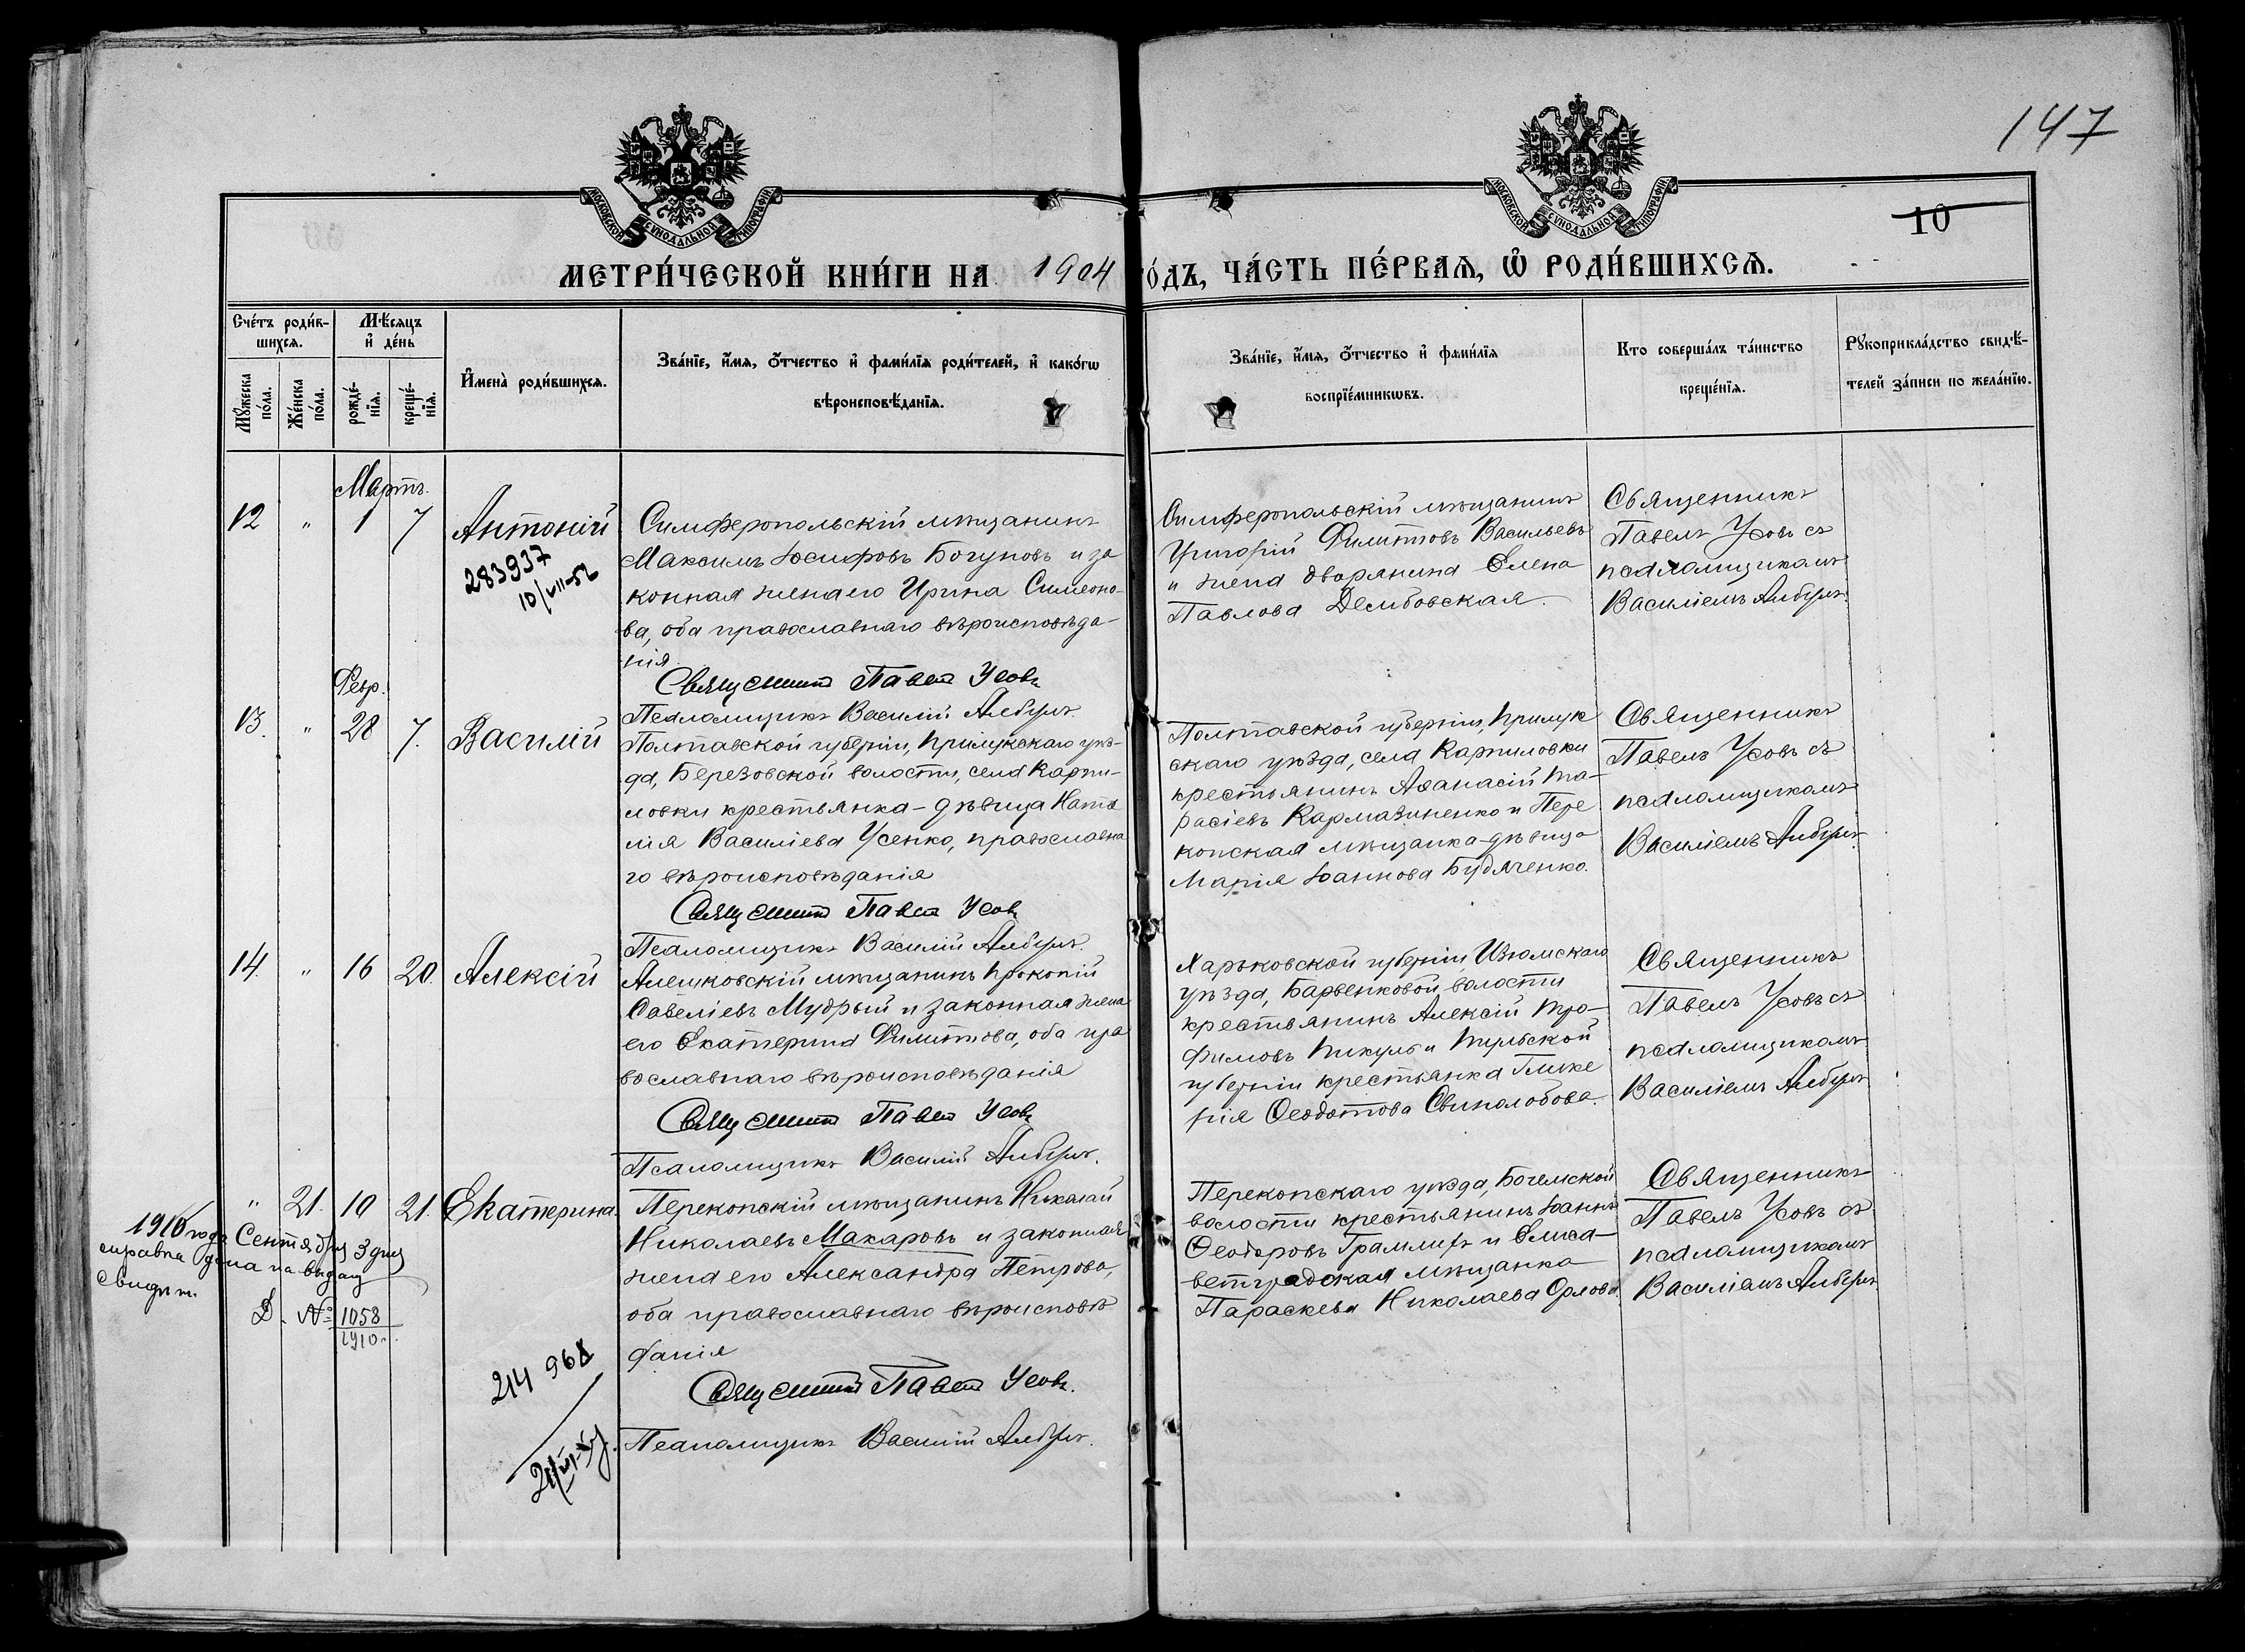 147
10
МОСКОВСКОЙ СѴНОДАЛЬНОЙ ТИПОГРАФІИ
МОСКОВСКОЙ СѴНОДАЛЬНОЙ ТИПОГРАФІИ
МЕТРИ́ЧЕСКОЙ КНИ́ГИ НА 1904 ГО́ДЪ, ЧА́СТЬ ПЕ́РВАЯ, Ѡ҆ РОДИ́ВШИХСЯ.
Сче́тъ роди́в-
шихся.
Мꙋ́жеска по́ла.
Же́нска по́ла.
Мѣ́сяцъ
и҆ де́нь
рожде́-
нїя.
креще́-
нїя.
И҆мена̀ роди́вшихся.
Зва́нїе, и҆́мя, ѻ҆́тчество и҆ фами́лїя роди́телей, и҆ како́гѡ
вѣроисповѣ́данїя.
Зва́нїе, и҆́мя, ѻ҆́тчество и҆ фами́лїя
воспрїе́мникѡвъ.
Кто соверша́лъ та́инство
креще́нїя.
Рꙋкоприкла́дство свидѣ́-
телей за́писи по жела́нїю.
Мартъ.
12 " 1 7 Антоній
283937
10/VII-56
Симферопольскій мѣщанинъ
Максимъ Іосифовъ Богуновъ и за
конная жена его Ирина Симеоно-
ва, оба православнаго вѣроисповѣда-
нія
Священникъ Павелъ Усовъ
Псаломщикъ Василій
Симферопольскій мѣщанинъ
Григорій Филиповъ Васильевъ
и жена дворянина Елена
Павлова Дембовская.
Священникъ
Павелъ Усовъ съ
псаломщикомъ
Василіемъ
Февр.
13. " 28 7. Василій
Полтавской губерніи, Прилукскаго уѣз-
да, Березовской волости, села Карпи-
ловки крестьянка-дѣвица Ната
лія Василіева Усенко, православна
го вѣроисповѣданія
Священникъ Павелъ Усовъ
Псаломщикъ Василій
Полтавской губерніи, Прилук
скаго уѣзда, села Карпиловки
крестьянинъ Аѳанасій Та-
расіевъ Кармазиненко и Пере
копская мѣщанка-дѣвица
Марія Іоаннова Будяченко.
Священникъ
Павелъ Усовъ съ
псаломщикомъ
Василіемъ
14. " 16 20. Алексій
Алешковскій мѣщанинъ Прокопій
Савеліевъ Мудрый и законная жена
его Екатерина Филипова, оба пра
вославнаго вѣроисповѣданія
Священникъ Павелъ Усовъ
Псаломщикъ Василій
Харьковской губерніи, Изюмскаго
уѣзда, Барвенковой волости
крестьянинъ Алексій Тро-
фимовъ Пикуль и Тульской
губерніи крестьянка Глике
рія Ѳеодотова Свинолобова.
Священникъ
Павелъ Усовъ съ
псаломщикомъ
Василіемъ
" 21. 10 21. Екатерина
1910 года Сентября 3 дня
справка дана на выдачу
Свидѣт.
Д. № 1058
1910 г.
214 968
Перекопскій мѣщанинъ Николай
Николаевъ Макаровъ и законная
жена его Александра Петрова,
оба православнаго вѣроисповѣ
данія
Священникъ Павелъ Усовъ.
Псаломщикъ Василій
Перекопскаго уѣзда, Богемской
волости крестьянинъ Іоаннъ
Ѳеодоровъ и Елиса-
ветградская мѣщанка
Параскева Николаева Орлова
Священникъ
Павелъ Усовъ съ
псаломщикомъ
Василіемъ